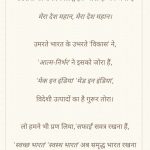 मेरा देश महान, मेरा देश महान।
उमरते भारत के उभरते 'विकास' ने,
'आत्म-निर्भर' ने इसको जोरा हैं,
'मेक इन इंडिया' 'मेड इन इंडिया',
विदेशी उत्पादों का है गुरूर तोरा।
लो हमने भी प्रण लिया, सफाई सवत्र रखना हैं,
'स्वच्छ भारत' 'स्वस्थ भारत' अब समृद्ध भारत रखना